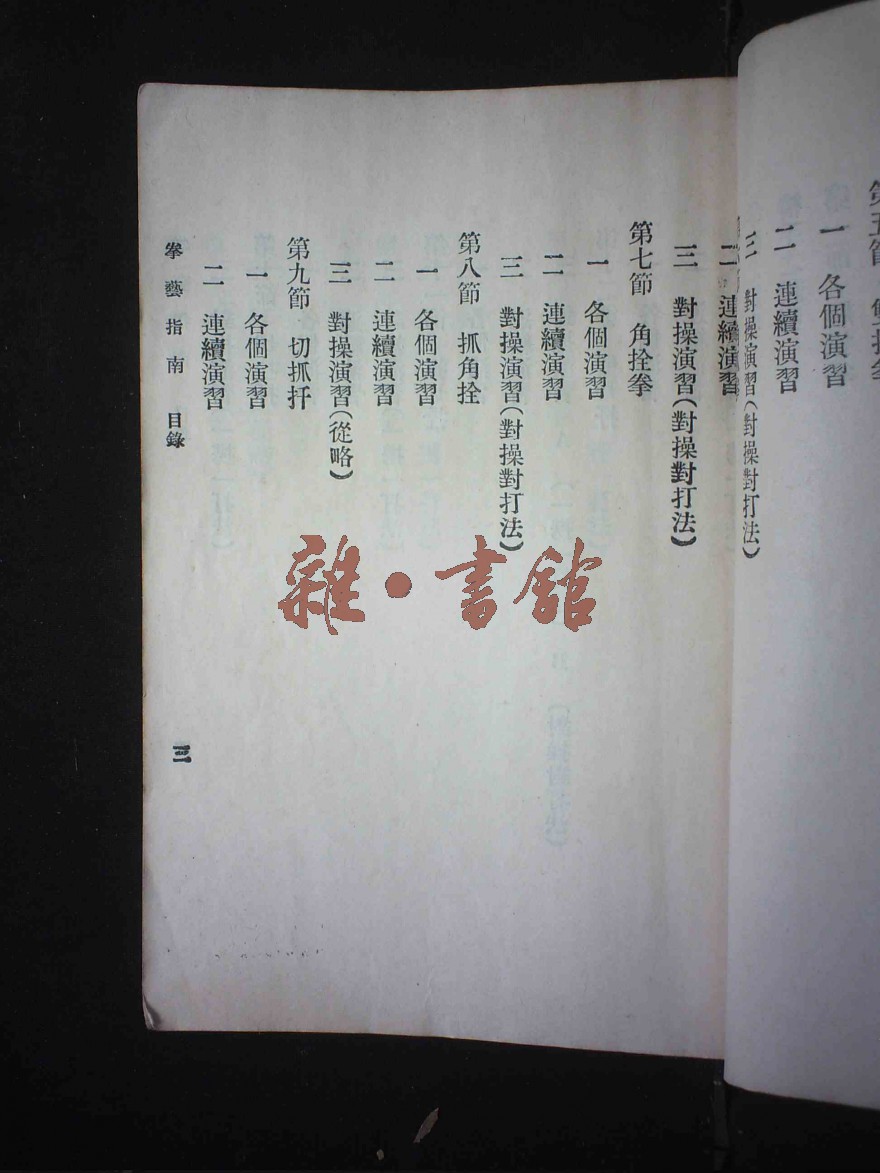 第五節
一 各個演習
二 連續演習
三 對操演習(對操對打法)
二 連續演習
三 對操演習(對操對打法)
第七節 角拴拳
一 各個演習
二 連續演習
三 對操演習(對操對打法)
第八節 抓角拴
一 各個演習
二 連續演習
三 對操演習(從略)
第九節 切抓扞
一 各個演習
二 連續演習
拳藝指南 目錄
三
雜·書館